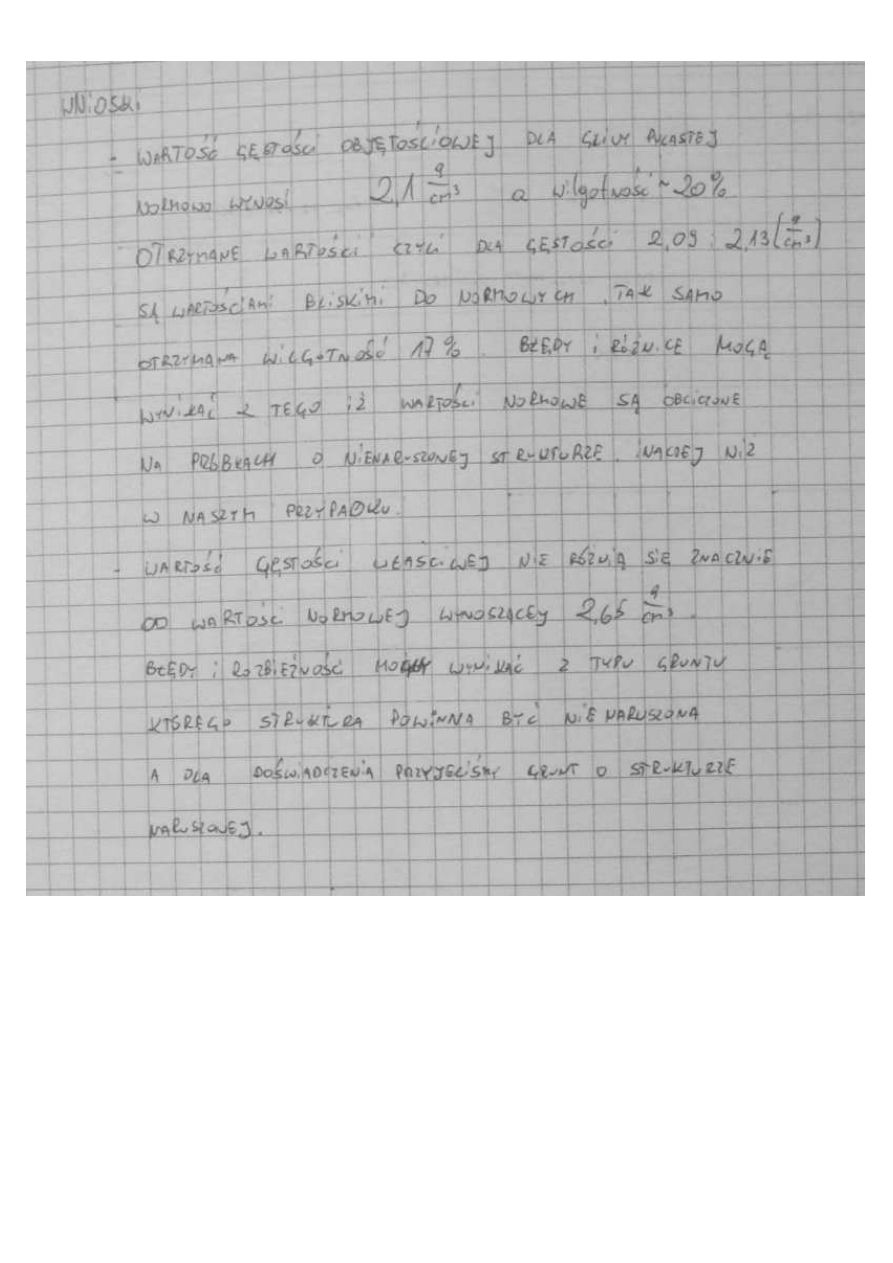 WNIOSKI
- WARTOŚĆ GĘSTOŚCI OBJĘTOŚCIOWEJ DLA GLINY PLASTEJ
NORMOWO WYNOSI 2,1 g/cm³ a wilgotność ~20%
OTRZYMANE WARTOŚCI CZYLI DLA GĘSTOŚCI 2,09 i 2,13 (g/cm³)
SĄ WARTOŚCIAMI BLISKIMI DO NORMOWYCH, TAK SAMO
OTRZYMANA WILGOTNOŚĆ 17%. BŁĘDY i RÓŻNICE MOGĄ
WYNIKAĆ Z TEGO iŻ WARTOŚCI NORMOWE SĄ OBLICZONE
NA PRÓBKACH O NIENARUSZONEJ STRUKTURZE. INACZEJ NIŻ
W NASZYM PRZYPADKU.
- WARTOŚĆ GĘSTOŚCI WŁAŚCIWEJ NIE RÓŻNIĄ SIĘ ZNACZNIE
OD WARTOŚC NORMOWEJ WYNOSZĄCEY 2,65 g/cm³.
BŁĘDY i ROZBIEŻNOŚĆ WYNIKAĆ Z TYPU GRUNTU
KTÓREGO STRUKTURA POWINNA BYĆ NIE NARUSZONA
A DLA DOŚWIADCZENIA PRZYJELIŚMY GRUNT O STRUKTURZE
NARUSZONEJ.